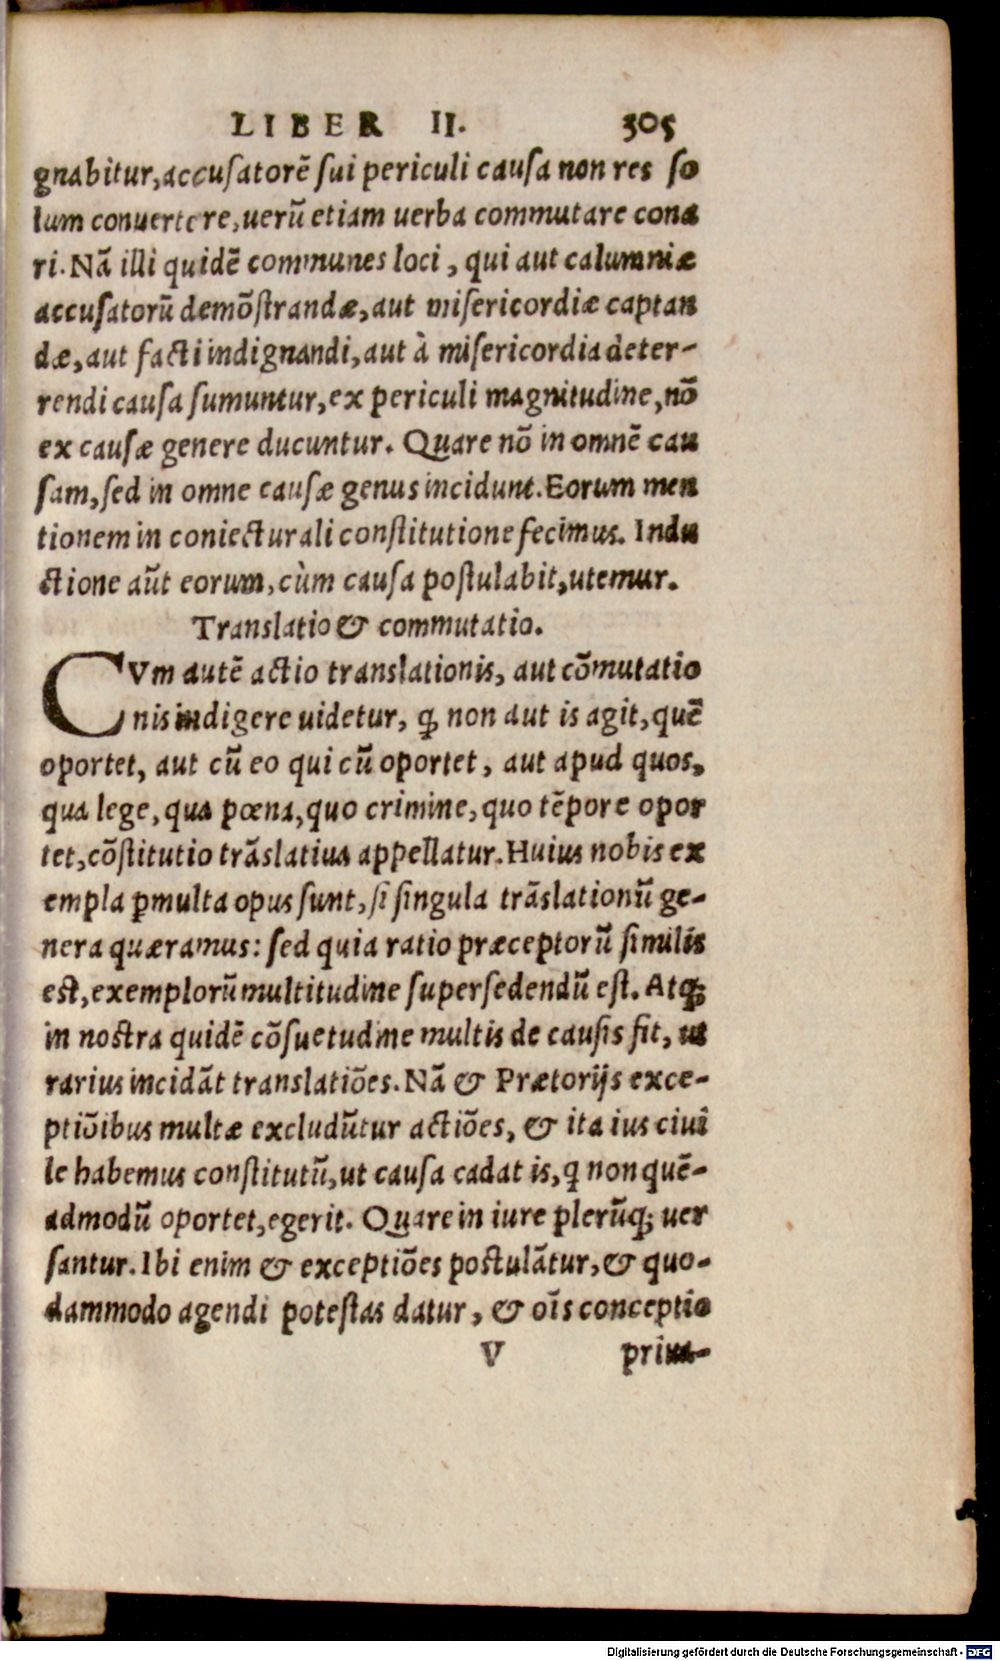 LIBER II. 305
gnabitur, accusatorē sui periculi causa non res so
lum conuertere, uerū etiam uerba commutare cona
ri. Nā illi quidē communes loci, qui aut calumniæ
accusatorū demōstrandæ, aut misericordiæ captan
dæ, aut facti indignandi, aut à misericordia deter-
rendi causa sumuntur, ex periculi magnitudine, nō
ex causæ genere ducuntur. Quare nō in omnē cau
sam, sed in omne causæ genus incidunt. Eorum men
tionem in coniecturali constitutione fecimus. Indu
ctione aūt eorum, cùm causa postulabit, utemur.
Translatio & commutatio.
CVm autē actio translationis, aut cōmutatio
nis indigere uidetur, ꝙ non aut is agit, quē
oportet, aut cū eo qui cū oportet, aut apud quos,
qua lege, qua pœna, quo crimine, quo tēpore opor
tet, cōstitutio trāslatiua appellatur. Huius nobis ex
empla ꝑmulta opus sunt, si singula trāslationū ge-
nera quæramus: sed quia ratio præceptorū similis
est, exemplorū multitudine supersedendū est. Atq;
in nostra quidē cōsuetudine multis de causis fit, ut
rarius incidāt translatiōes. Nā & Prætorijs exce-
ptiōibus multæ excludūtur actiōes, & ita ius ciui
le habemus constitutū, ut causa cadat is, q non quē-
admodū oportet, egerit. Quare in iure plerūq; uer
santur. Ibi enim & exceptiōes postulātur, & quo-
dammodo agendi potestas datur, & oīs conceptio
V priua-
Digitalisierung gefördert durch die Deutsche Forschungsgemeinschaft - DFG